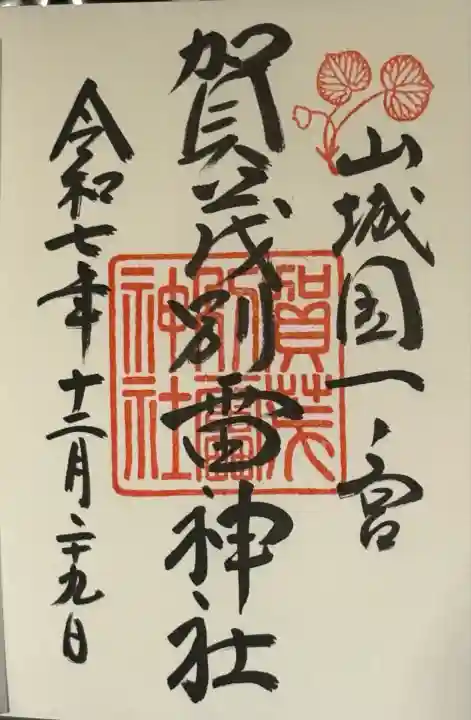 山城国一ノ宮
賀茂別雷神社
賀茂
別雷
神社
令和七年十二月二十九日